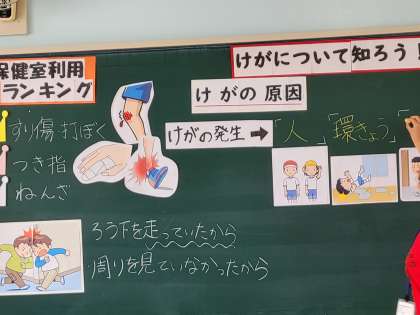 保健室利用
ランキング
すり傷 打ぼく
つき指
ねんざ
けがについて知ろう!
けがの原因
けがの発生➡「人」「環きょう」「
ろう下を走っていたから
周りを見ていなかったから